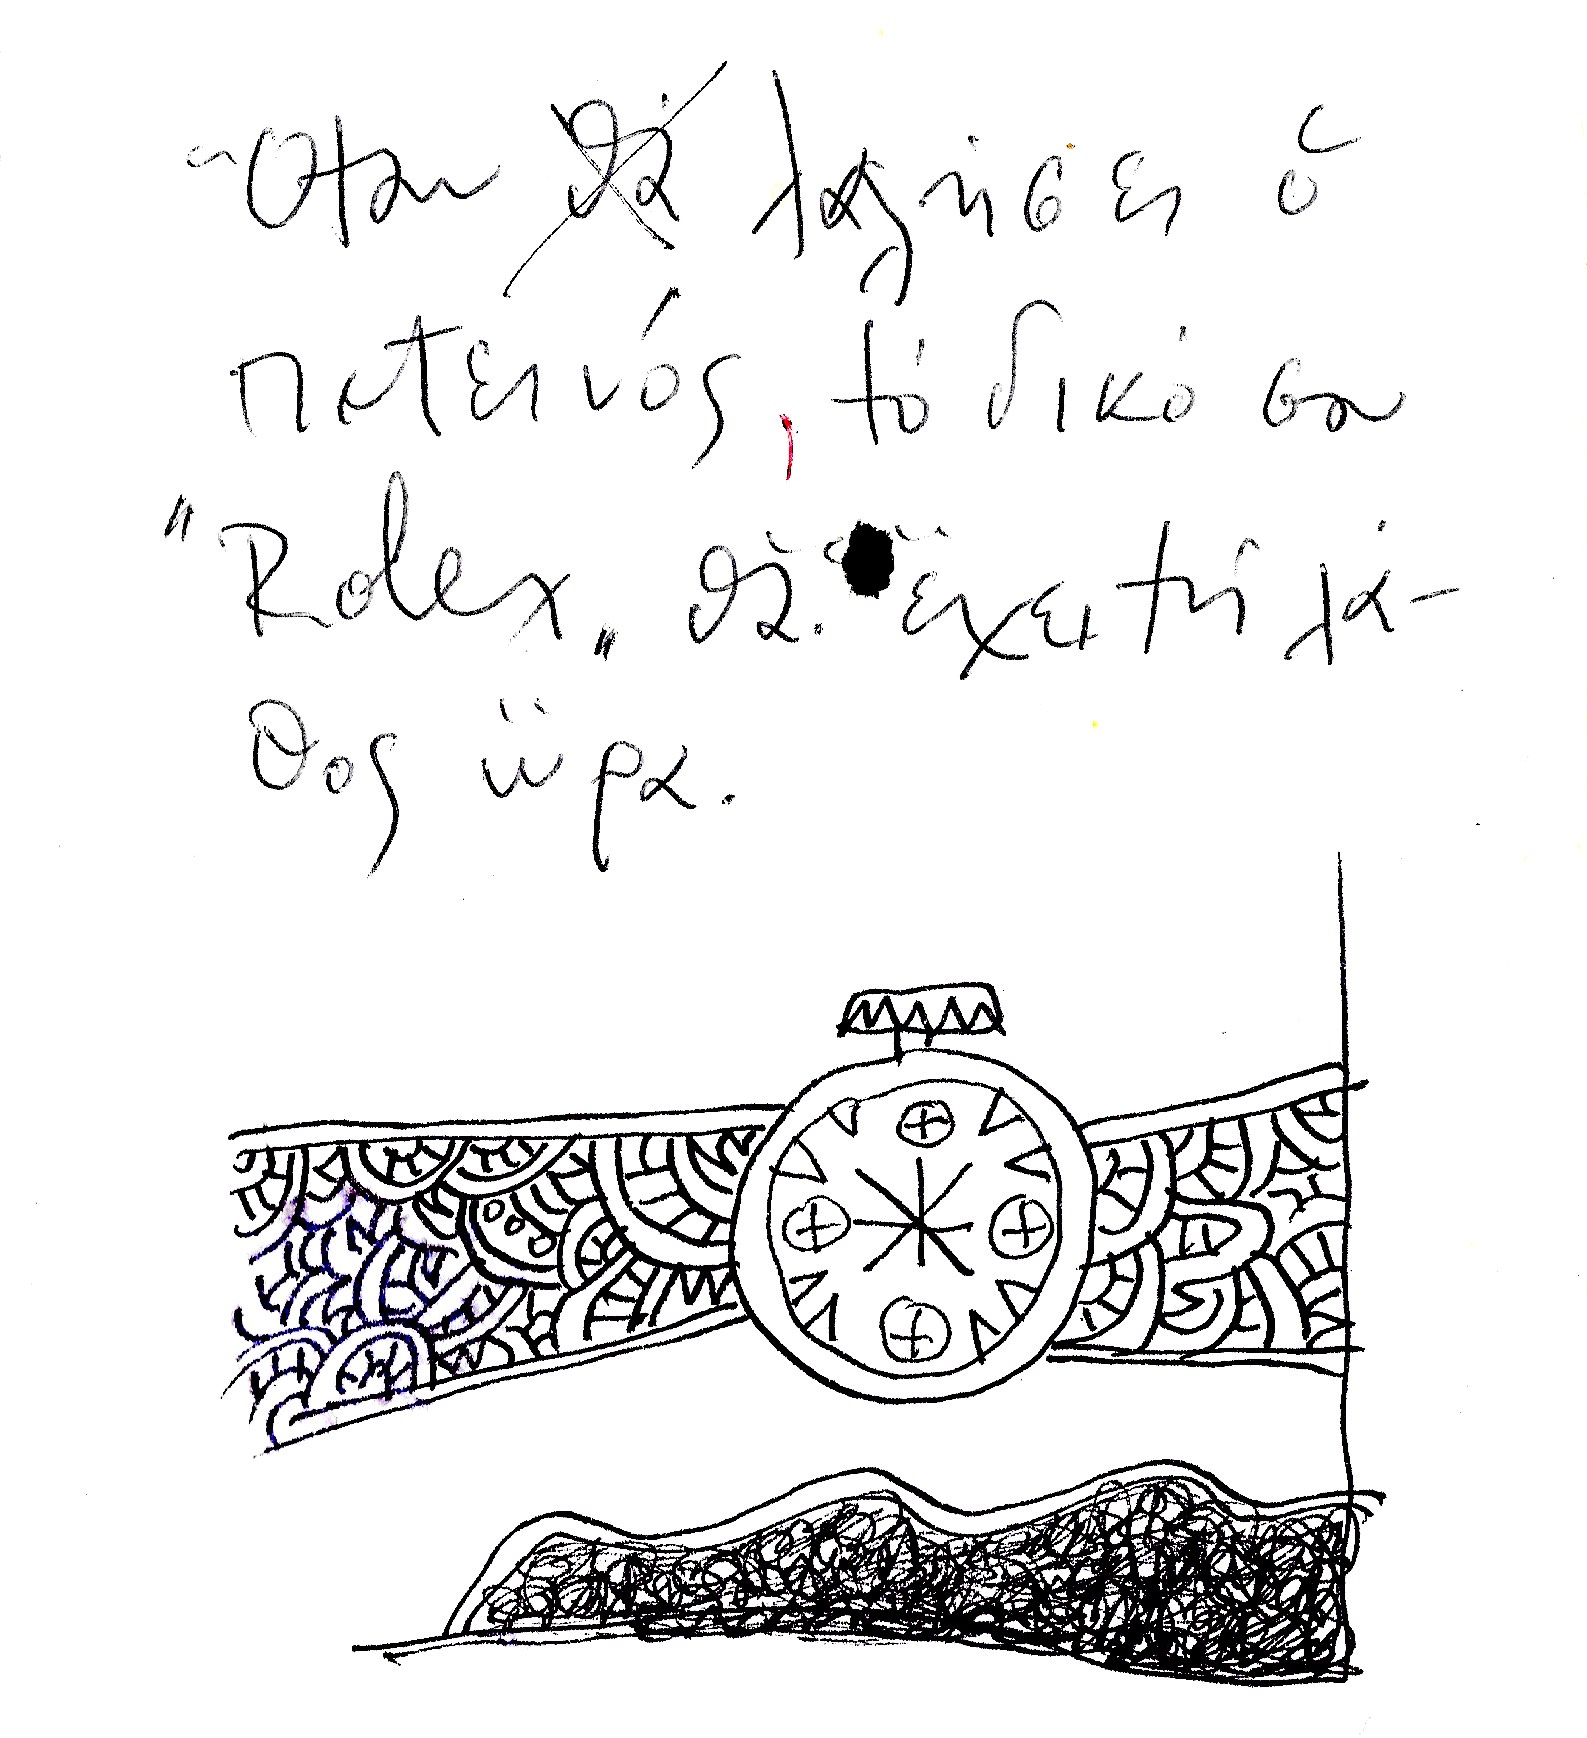 Ὅταν θὰ λαλήσει ὁ
πετεινός, τὸ δικό σου
"Rolex" θὰ ἔχει τὴ λά-
θος ὥρα.